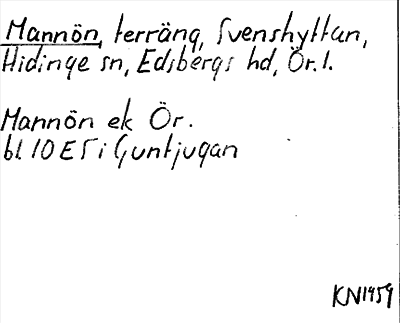 Mannön, terräng, Svenshyttan,
Hidinge sn, Edsbergs hd, Ör. l.
Mannön ek Ör.
bl. 10 E 5 i Guntjugan
KN1959